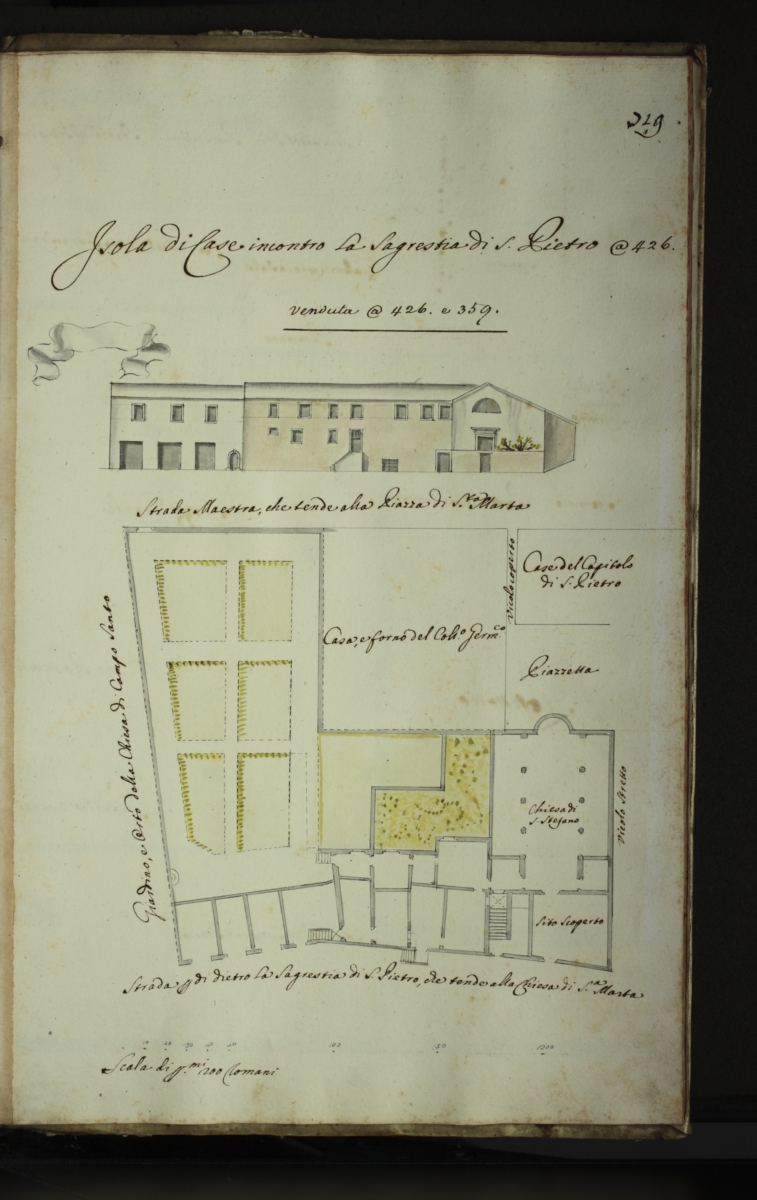 319
Isola di Case incontro la Sagrestia di S. Pietro @ 426.
venduta @ 426. e 359.
Strada Maestra, che tende alla Piazza di S.ta Marta
Giardino, e Orto della Chiesa di Campo Santo
Casa, e forno del Coll.o Germ.co
Vicolo coperto
Case del Capitolo
di S. Pietro
Piazzetta
Chiesa di
S. Stefano
Vicolo Stretto
Sito Scoperto
Strada di dietro la Sagrestia di S. Pietro, che tende alla Chiesa di S.a Marta
Scala di p.mi 200 Romani